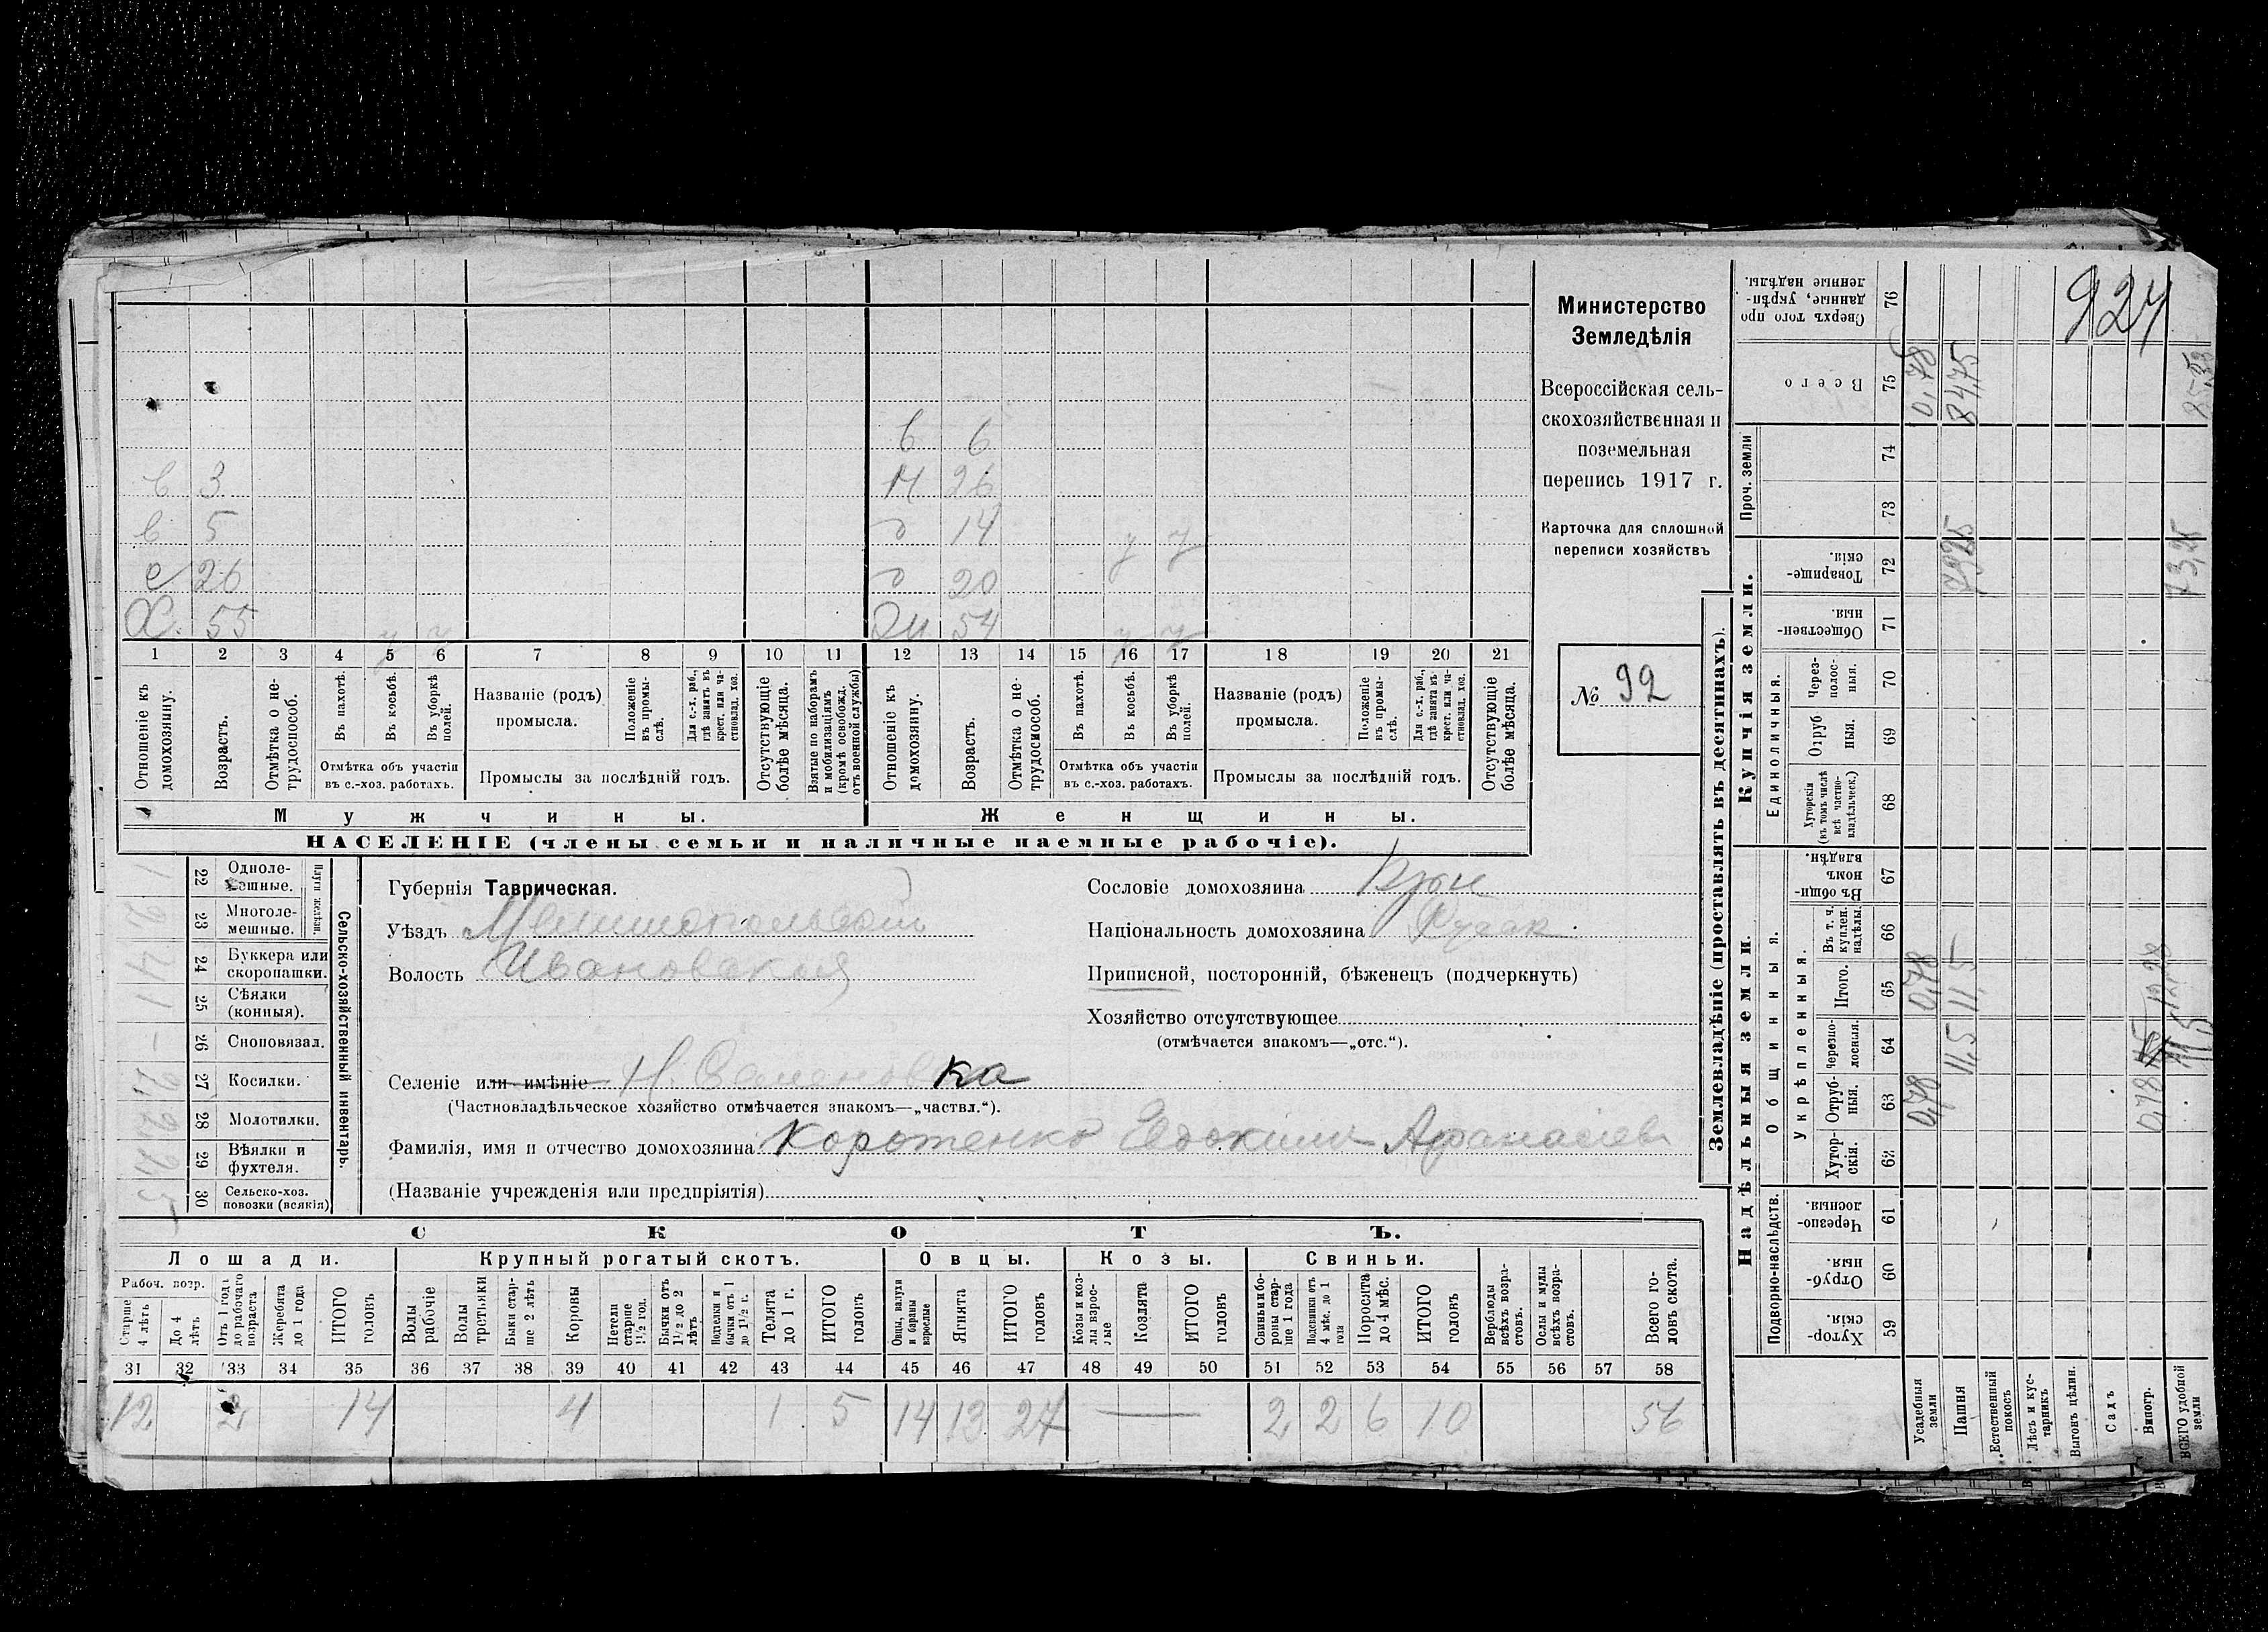 924
Министерство
Земледѣлія
Всероссійская сель-
скохозяйственная и
поземельная
перепись 1917 г.
Карточка для сплошной
переписи хозяйствъ
№ 92
в 6
в 3 н 26
в 5 д 14 у у
с 26 д 20
Х. 55 у у Жн 54 у у
1 2 3 4 5 6 7 8 9 10 11 12 13 14 15 16 17 18 19 20 21
Отношеніе къ домохозяину.
Возрастъ.
Отмѣтка о не-трудоспособ.
Въ пахотѣ.
Въ косьбѣ.
Въ уборкѣ полей.
Отмѣтка объ участіи
въ с.-хоз. работахъ.
Названіе (родъ)
промысла.
Положеніе въ промы-слѣ.
Для с.-х. раб., гдѣ занятъ въ крест. или ча-стновлад. хоз.
Промыслы за послѣдній годъ.
Отсутствующіе болѣе мѣсяца.
Взятые по наборамъ и мобилизаціямъ (кромѣ освобожд. отъ военной службы)
Отношеніе къ домохозяину.
Возрастъ.
Отмѣтка о не-трудоспособ.
Въ пахотѣ.
Въ косьбѣ.
Въ уборкѣ полей.
Отмѣтка объ участіи
въ с.-хоз. работахъ.
Названіе (родъ)
промысла.
Положеніе въ промы-слѣ.
Для с.-х. раб., гдѣ занята въ крест. или ча-стновлад. хоз.
Промыслы за послѣдній годъ.
Отсутствующіе болѣе мѣсяца.
Мужчины. Женщины.
НАСЕЛЕНІЕ (члены семьи и наличные наемные рабочіе).
Сельско-хозяйственный инвентарь.
Плуги желѣзн.
22 Одноле-мешные. 1
23 Многоле-мешные. 2
24 Буккера или скоропашки. 4
25 Сѣялки (конныя). 1
26 Сноповязал. –
27 Косилки. 2
28 Молотилки. 2
29 Вѣялки и фухтеля. 2
30 Сельско-хоз. повозки (всякія) 5
Губернія Таврическая.
Уѣздъ Мелитопольскій
Волость Ивановская
Селеніе или имѣніе Н. Семеновка
(Частновладѣльческое хозяйство отмѣчается знакомъ—„частвл.“).
Фамилія, имя и отчество домохозяина Коротенко Евдокимъ Афанасіев
(Названіе учрежденія или предпріятія)
Сословіе домохозяина Крн
Національность домохозяина
Приписной, посторонній, бѣженецъ (подчеркнуть)
Хозяйство отсутствующее
(отмѣчается знакомъ—„отс.“).
СКОТЪ.
Лошади. Крупный рогатый скотъ. Овцы. Козы. Свиньи.
Рабоч. возр.
Старше 4 лѣтъ
До 4 лѣтъ
Отъ 1 года до рабочаго возраста
Жеребята до 1 года
ИТОГО головъ
Волы рабочіе
Волы третьяки
Быки стар-ше 2 лѣтъ
Коровы
Нетели старше 1½ год.
Бычки отъ 1½ до 2 лѣтъ
Нетелки и бычки отъ 1 до 1½ г.
Телята до 1 г.
ИТОГО головъ
Овцы, валухи и бараны взрослые
Ягнята
ИТОГО головъ
Козы и коз-лы взрос-лые
Козлята
ИТОГО головъ
Свиньи бо-ровы стар-ше 1 года
Подсвинки отъ 4 мѣс. до 1 года
Поросята до 4 мѣс.
ИТОГО головъ
Верблюды всѣхъ возра-стовъ.
Ослы и мулы всѣхъ возра-стовъ.
Всего го-ловъ скота.
31 32 33 34 35 36 37 38 39 40 41 42 43 44 45 46 47 48 49 50 51 52 53 54 55 56 57 58
12 2 14 4 1 5 14 13 27 — 2 2 6 10 56
Землевладѣніе (проставлять въ десятинахъ).
Надѣльныя земли. Купчія земли.
Подворно-наслѣдств.
Общинныя.
Укрѣпленныя.
Единоличныя.
Проч. земли
59 Хутор-скія.
60 Отруб-ныя.
61 Черезпо-лосныя.
62 Хутор-скія.
63 Отруб-ныя.
64 Черезпо-лосныя.
65 Итого.
66 Въ т. ч. куплен. надѣлы.
67 Въ общи-номъ владѣн.
68 Хуторскія (въ томъ числѣ всѣ частно-владѣльческ.)
69 Отруб ныя.
70 Через-полос-ныя.
71 Обществен-ныя.
72 Товарище-скія.
73
74
75 Всего
76 Сверхъ того про данные, укрѣп-ленные надѣлы.
Усадебныя земли 0,78 0,78 0,78
Пашня 11,5 11,5 7325 8475
Естественный покосъ
Лѣсъ и кус-тарникъ
Выгонъ цѣлин.
Садъ
Виногр.
ВСЕГО удобной земли 0,78 11,5 12,28 73,25 85,53